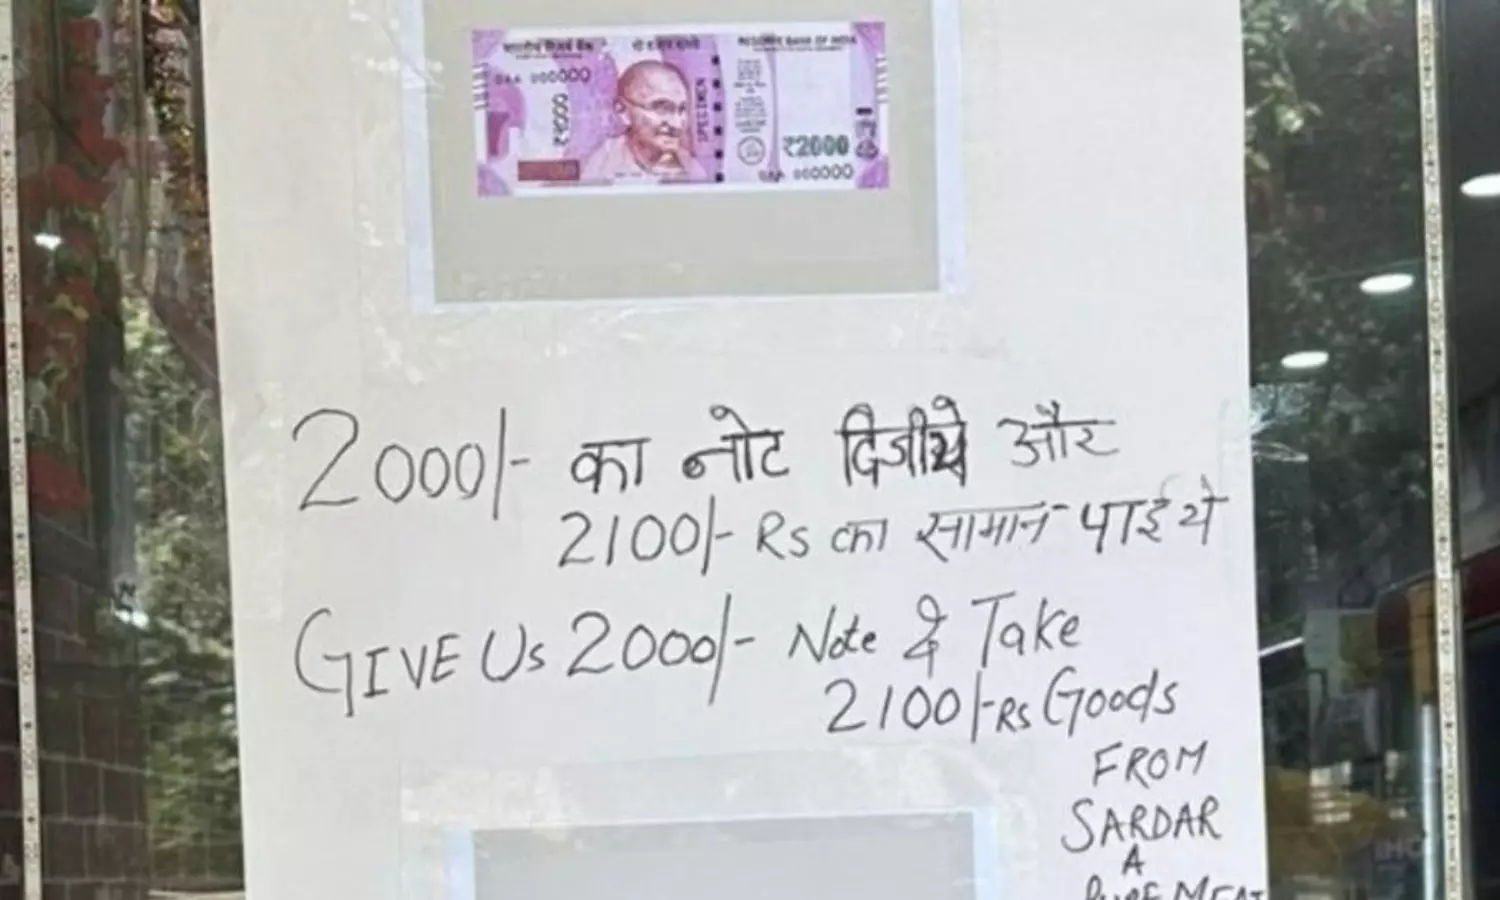 भारतीय रिज़र्व बैंक
दो हज़ार रुपये
RESERVE BANK OF INDIA
0AA 000000
₹२०००
SPECIMEN
₹2000
0AA 000000
2000/- का नोट दिजीये और
2100/- Rs का सामान पाइये
GIVE Us 2000/- Note & Take
2100/-Rs Goods
FROM
SARDAR
A
PURE MEAT